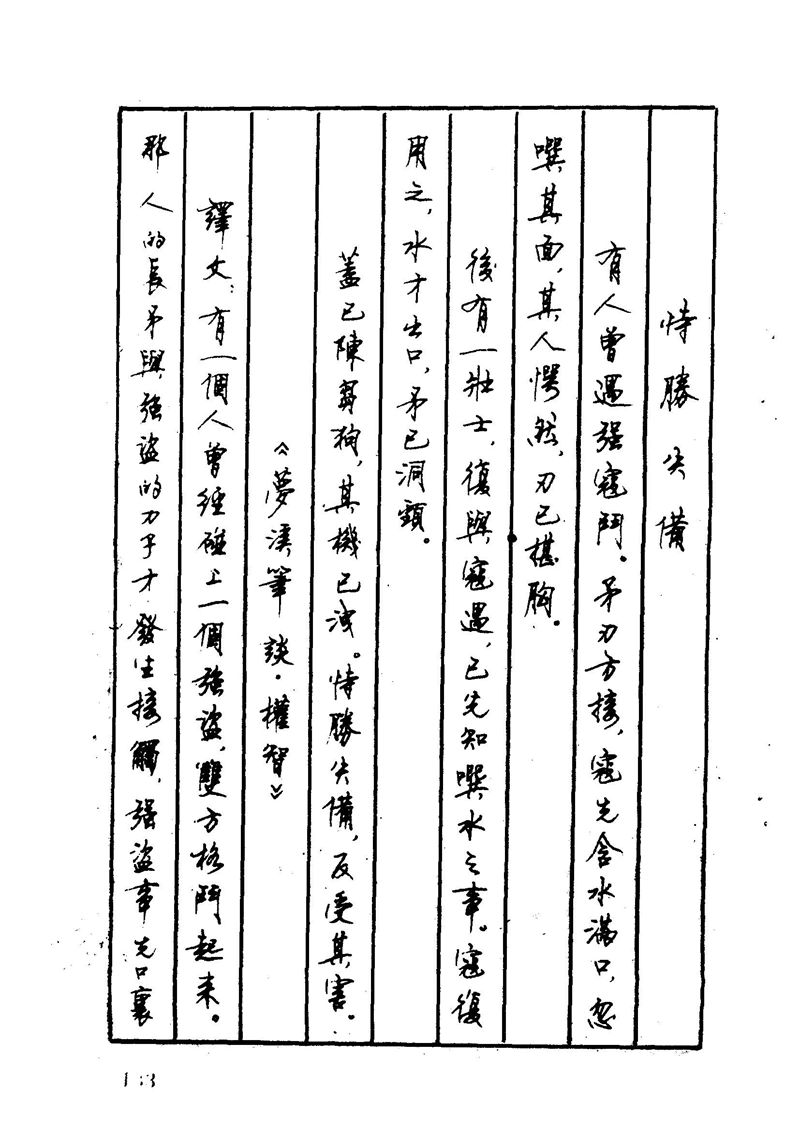 恃勝失備
有人曾遇强寇鬥。矛刃方接，寇先含水滿口，忽
噀其面，其人愕然，刃已揕胸。
後有一壯士，復與寇遇，已先知噀水之事。寇復
用之，水才出口，矛已洞頸。
蓋已陳芻狗，其機已洩。恃勝失備，反受其害。
《夢溪筆談·權智》
譯文：有一個人曾經碰上一個强盜，雙方格鬥起来。
那人的長矛與强盜的刀子才發生接觸，强盜事先口裏
133